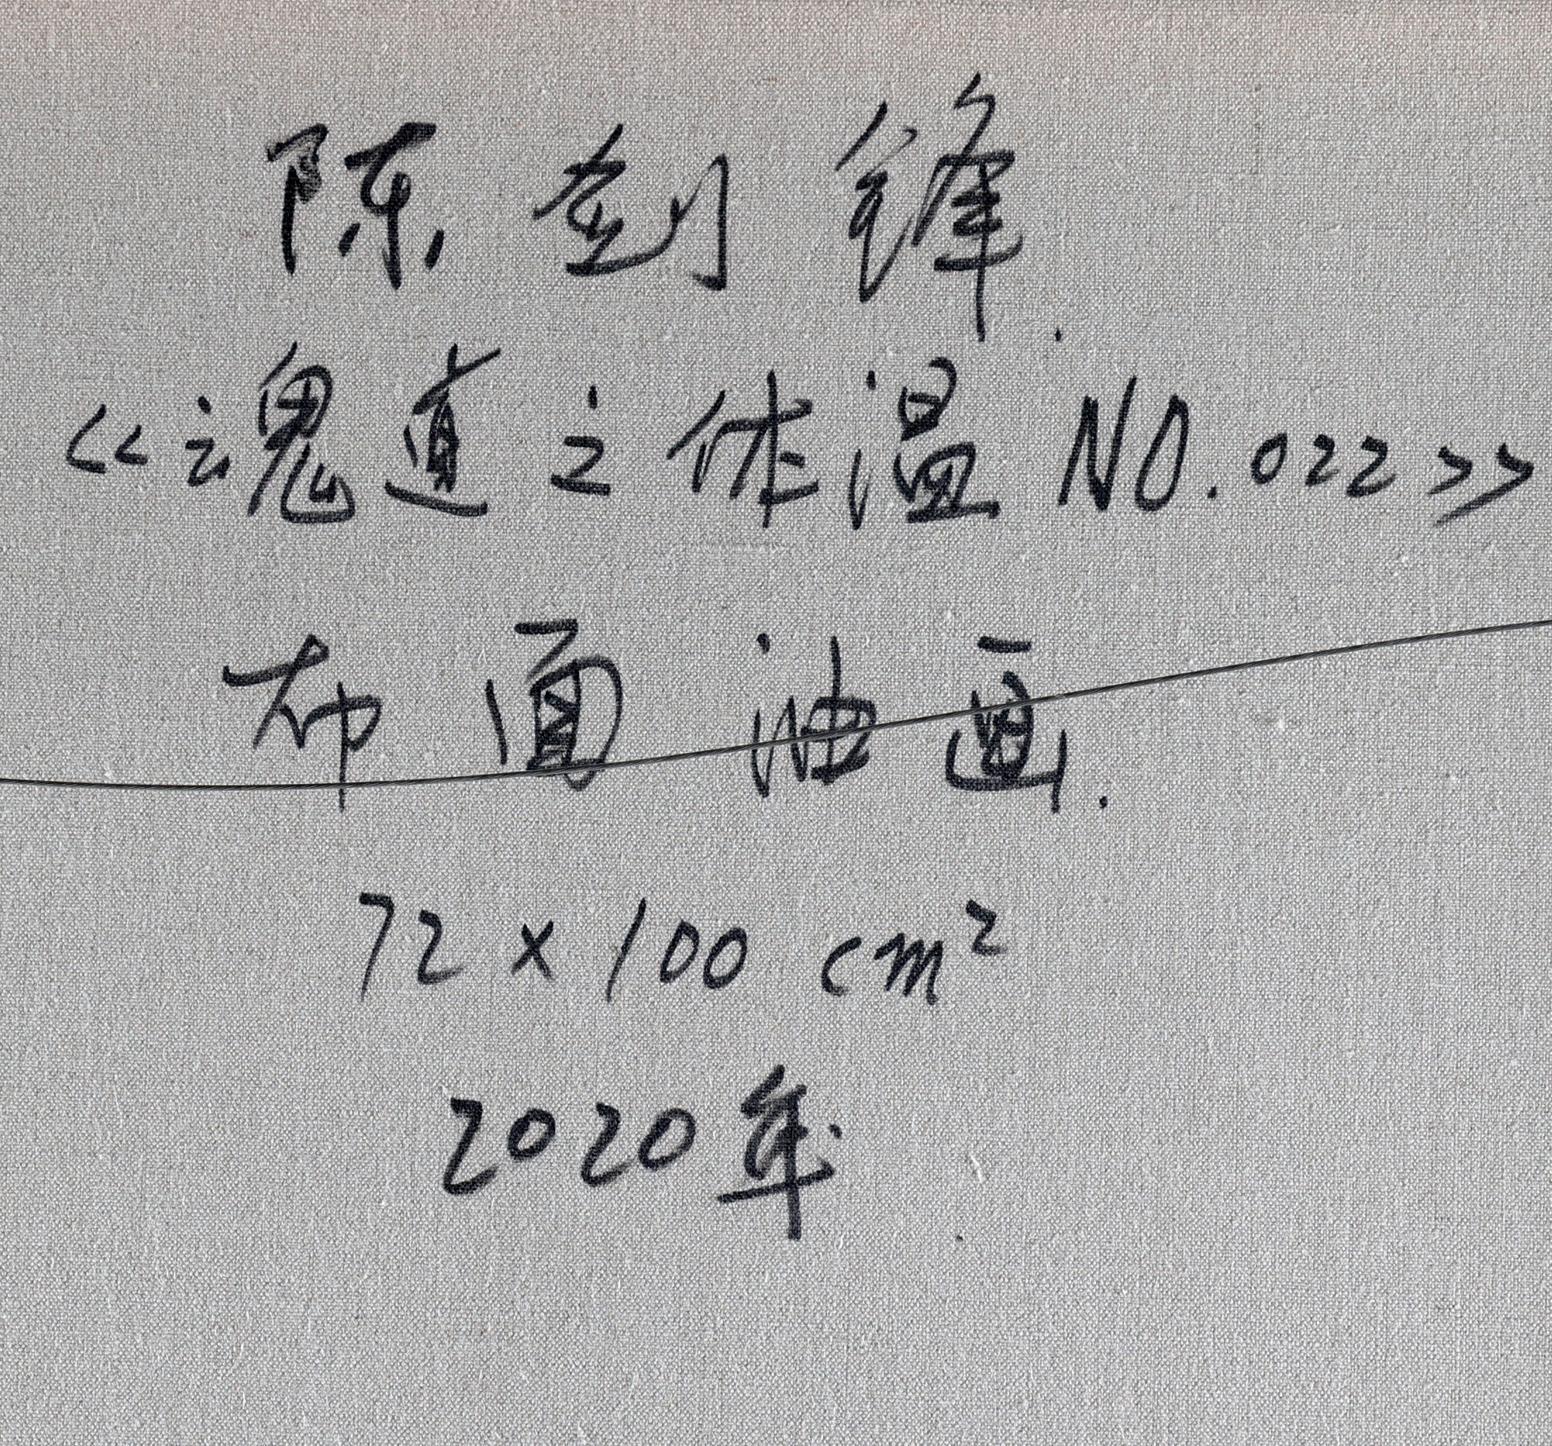 陈剑锋.
<<魂直之体温 NO.022>>
布面油画.
72×100 cm²
2020年